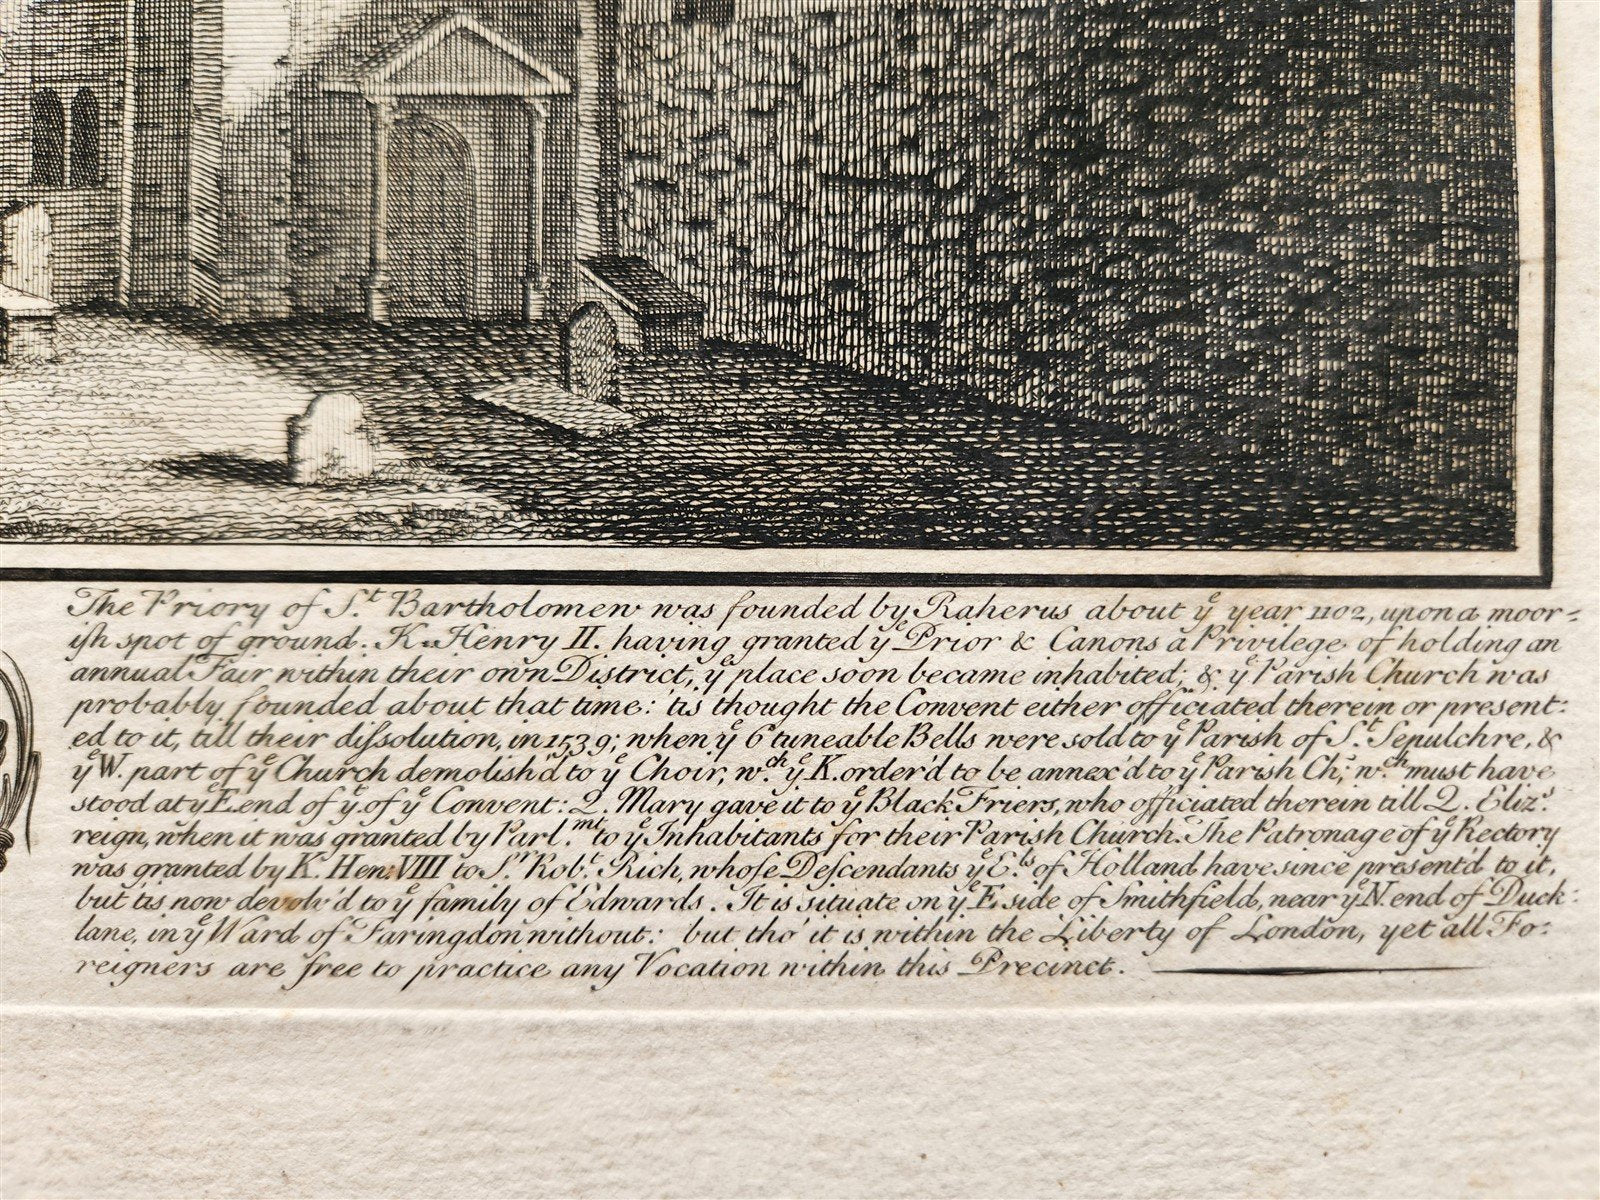 The Priory of S.t Bartholomew was founded by Raherus about ye year 1102, upon a moor=
ish spot of ground. K. Henry II. having granted ye Prior & Canons a Privilege of holding an
annual Fair within their own District, ye place soon became inhabited; & ye Parish Church was
probably founded about that time: 'tis thought the Convent either officiated therein or present:
ed to it, till their dissolution, in 1539; when ye 6 tuneable Bells were sold to ye Parish of S.t Sepulchre, &
ye W. part of ye Church demolish'd to ye Choir, w.ch ye K. order'd to be annex'd to ye Parish Ch; w.ch must have
stood at ye E. end of ye. of ye Convent: Q. Mary gave it to ye Black Friers, who officiated therein till Q. Eliz.s
reign, when it was granted by Parl.mt to ye Inhabitants for their Parish Church. The Patronage of ye Rectory
was granted by K. Hen: VIII to S.r Rob.t Rich, whose Descendants ye E.ls of Holland have since present'd to it,
but 'tis now devolv'd to ye family of Edwards. It is situate on ye E. side of Smithfield, near ye N. end of Duck:
lane, in ye Ward of Faringdon without: but tho' it is within the Liberty of London, yet all Fo:
reigners are free to practice any Vocation within this Precinct.